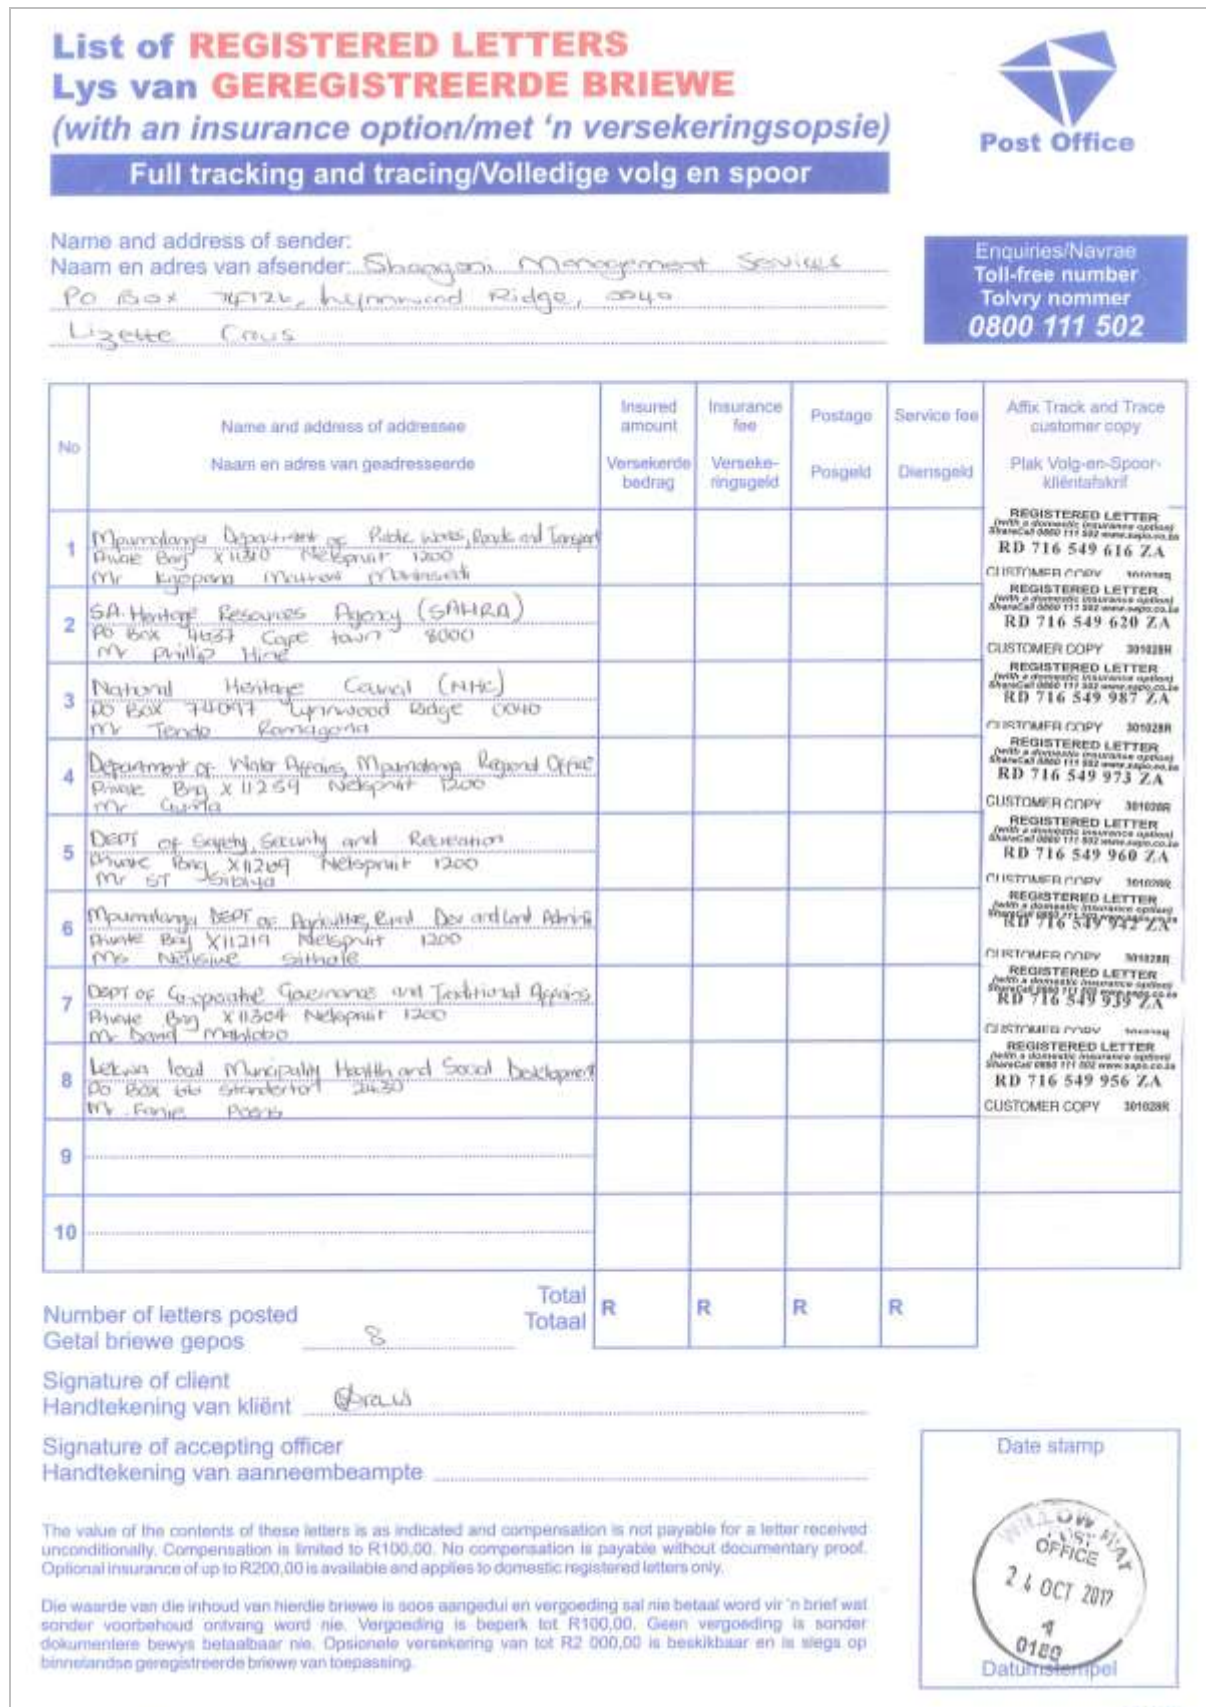 List of REGISTERED LETTERS
Lys van GEREGISTREERDE BRIEWE
(with an insurance option/met 'n versekeringsopsie)
Full tracking and tracing/Volledige volg en spoor
Post Office
Name and address of sender:
Naam en adres van afsender: Shangoni Management Services
PO Box 74726, Lynnwood Ridge, 0040
Lizette Crous
Enquiries/Navrae
Toll-free number
Tolvry nommer
0800 111 502
No
Name and address of addressee
Naam en adres van geadresseerde
Insured amount
Versekerde bedrag
Insurance fee
Verseke-ringsgeld
Postage
Posgeld
Service fee
Diensgeld
Affix Track and Trace customer copy
Plak Volg-en-Spoor-kliëntafskrif
1
Mpumalanga Department of Public Works, Roads and Transport
Private Bag X11310 Nelspruit 1200
Mr Mathews
REGISTERED LETTER
(with a domestic insurance option)
ShareCall 0860 111 502 www.sapo.co.za
RD 716 549 616 ZA
CUSTOMER COPY 301028R
2
SA. Heritage Resources Agency (SAHRA)
PO Box 4637 Cape town 8000
Mr Phillip Hine
REGISTERED LETTER
(with a domestic insurance option)
ShareCall 0860 111 502 www.sapo.co.za
RD 716 549 620 ZA
CUSTOMER COPY 301028R
3
National Heritage Council (NHC)
PO Box 74097 Lynnwood Ridge 0040
Mr Tendo Ramagoma
REGISTERED LETTER
(with a domestic insurance option)
ShareCall 0860 111 502 www.sapo.co.za
RD 716 549 987 ZA
CUSTOMER COPY 301028R
4
Department of Water Affairs, Mpumalanga Regional Office
Private Bag X11259 Nelspruit 1200
Mr
REGISTERED LETTER
(with a domestic insurance option)
ShareCall 0860 111 502 www.sapo.co.za
RD 716 549 973 ZA
CUSTOMER COPY 301028R
5
DEPT of Safety, Security and Recreation
Private Bag X11269 Nelspruit 1200
Mr ST Sibiya
REGISTERED LETTER
(with a domestic insurance option)
ShareCall 0860 111 502 www.sapo.co.za
RD 716 549 960 ZA
CUSTOMER COPY 301028R
6
Mpumalanga DEPT of Agriculture, Rural Dev and Land Admin
Private Bag X11219 Nelspruit 1200
Ms Sithole
REGISTERED LETTER
(with a domestic insurance option)
ShareCall 0860 111 502 www.sapo.co.za
RD 716 549 942 ZA
CUSTOMER COPY 301028R
7
DEPT of Cooperative Governance and Traditional Affairs
Private Bag X11304 Nelspruit 1200
Mr David Mahlobo
REGISTERED LETTER
(with a domestic insurance option)
ShareCall 0860 111 502 www.sapo.co.za
RD 716 549 939 ZA
CUSTOMER COPY
8
Lekwa local Municipality Health and Social Development
PO Box 66 Standerton 2430
Mr. Fanie
REGISTERED LETTER
(with a domestic insurance option)
ShareCall 0860 111 502 www.sapo.co.za
RD 716 549 956 ZA
CUSTOMER COPY 301028R
9
10
Total
Totaal
R R R R
Number of letters posted
Getal briewe gepos 8
Signature of client
Handtekening van kliënt
Signature of accepting officer
Handtekening van aanneembeampte
The value of the contents of these letters is as indicated and compensation is not payable for a letter received
unconditionally. Compensation is limited to R100,00. No compensation is payable without documentary proof.
Optional insurance of up to R200,00 is available and applies to domestic registered letters only.
Die waarde van die inhoud van hierdie briewe is soos aangedui en vergoeding sal nie betaal word vir 'n brief wat
sonder voorbehoud ontvang word nie. Vergoeding is beperk tot R100,00. Geen vergoeding is sonder
dokumentere bewys betaalbaar nie. Opsionele versekering van tot R2 000,00 is beskikbaar en is slegs op
binnelandse geregistreerde briewe van toepassing.
Date stamp
OFFICE
24 OCT 2017
0180
Datumstempel